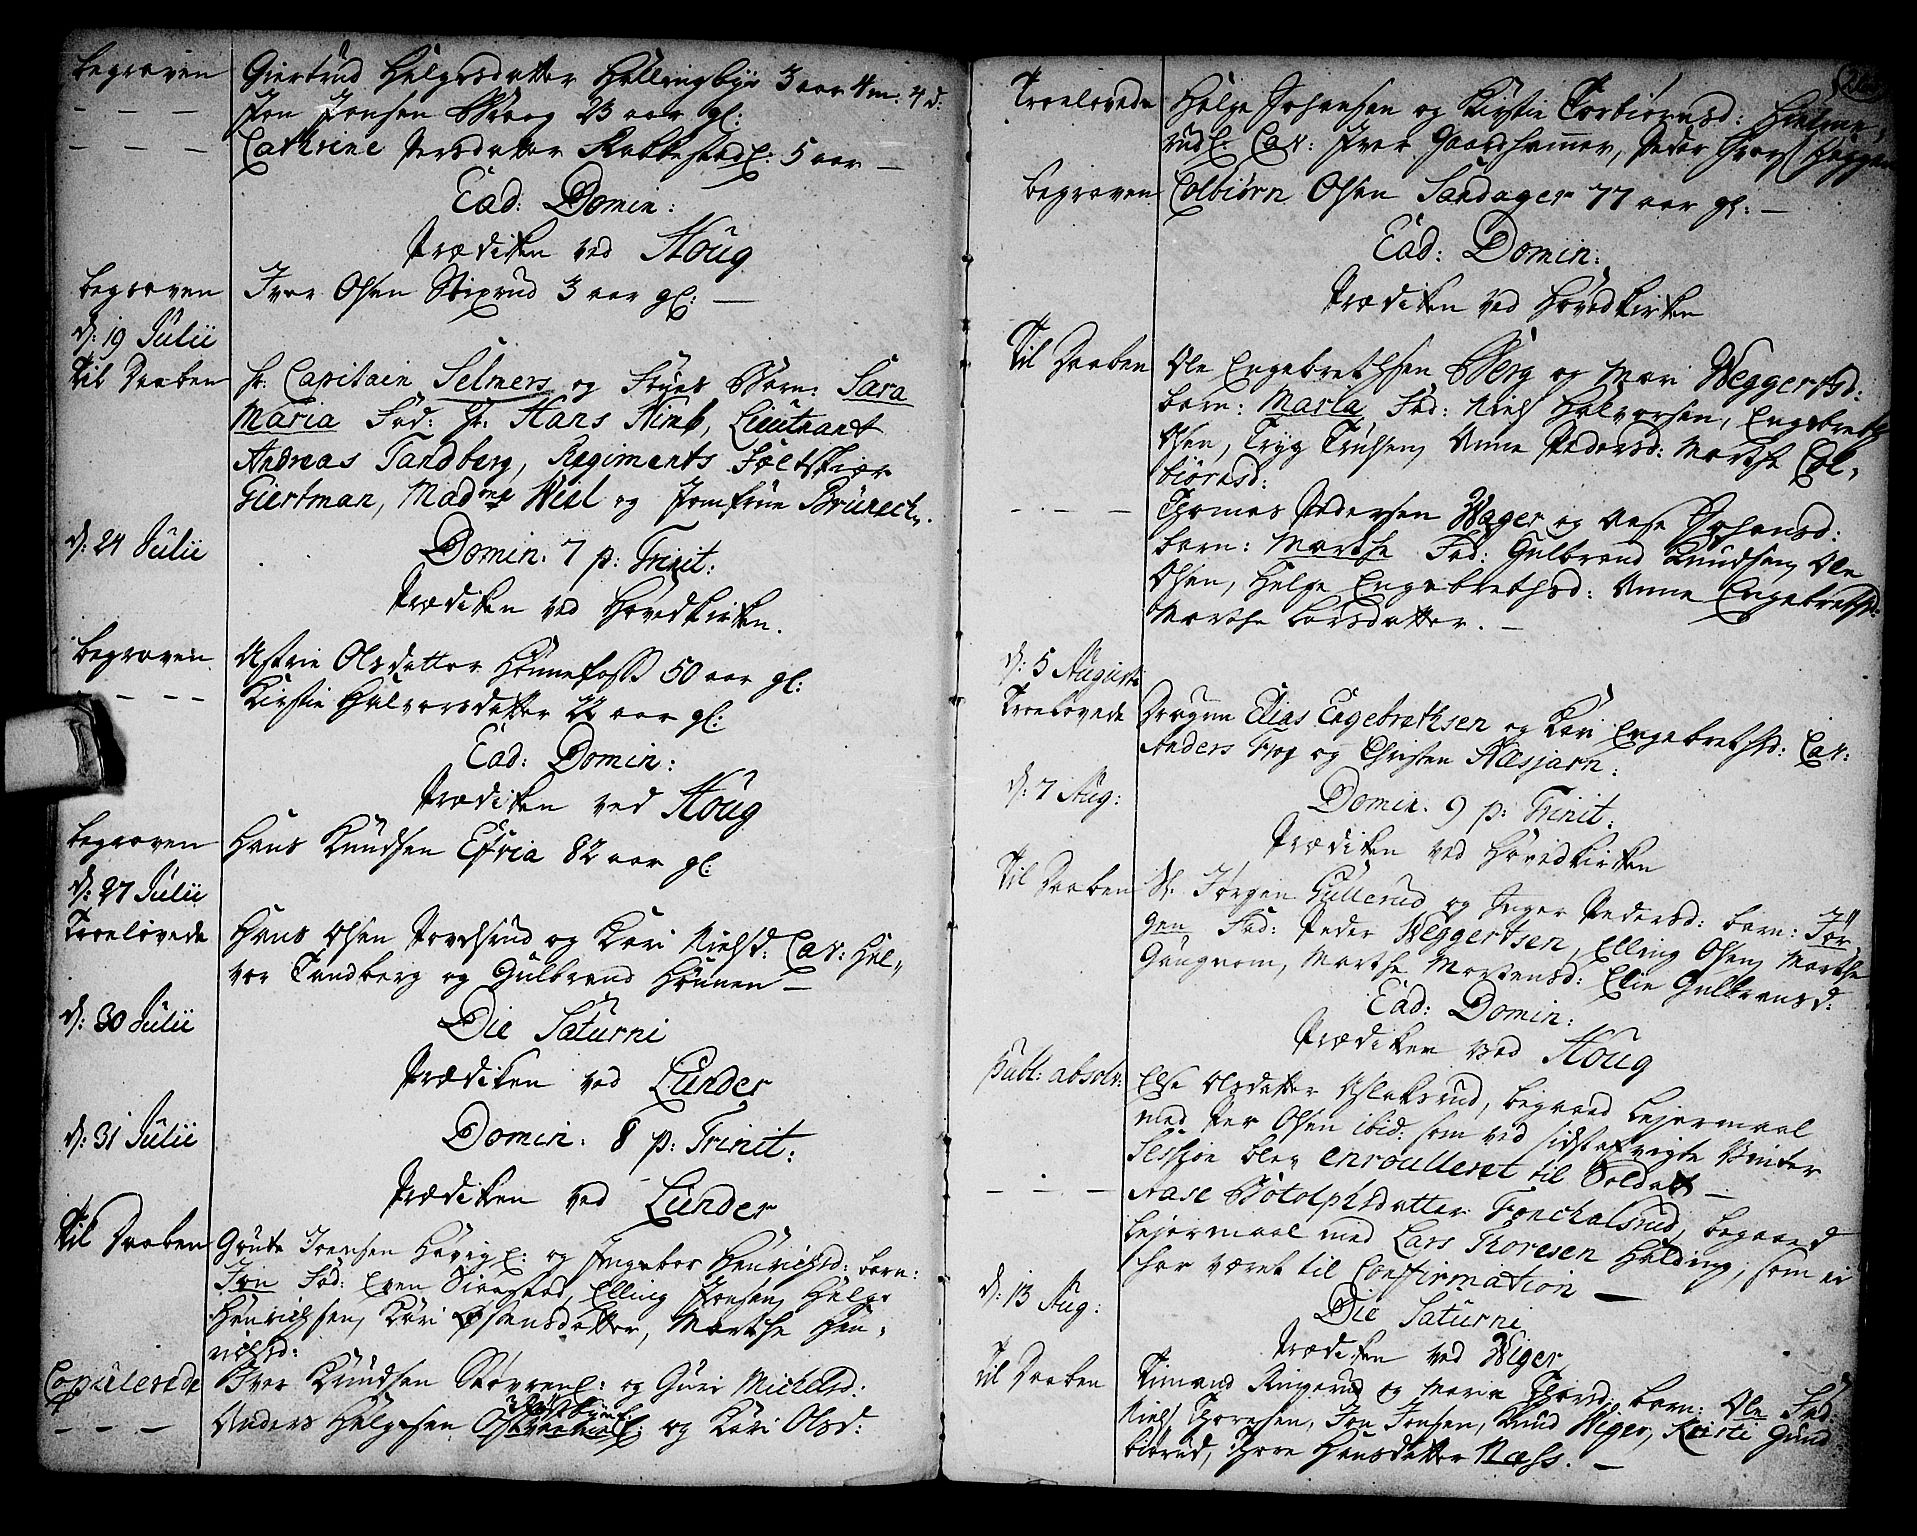 begraven Giertrud Helgesdatter Hallingbye 3 aar 4 m: 4 d:
— — — Jon Jonsen Moog 23 aar gl:
— — — Cathrine Persdatter Rakkestad 5 aar —
Ead: Domin:
Prædiken ved Houg
begraven Iver Olsen Stixrud 3 aar gl: —
d: 19 Julii
Til Daaben Hr. Capitain Selmers og Frues Barn: Sara
Maria Fad: Hr. Hans Nimb, Lieutnant
Andreas Tandberg, Regiments Feltskier
Giertman, Madme Wiel og Jomfrue Brürech.
d: 24 Julii Domin: 7 p: Trinit:
Prædiken ved Hovedkirken.
begraven Astrie Olsdatter Hønnefoss 50 aar gl:
— — — Kirstie Halvorsdatter 22 aar gl:
Ead: Domin:
Prædiken ved Houg
begraven Hans Knudsen Estria 82 aar gl:
d: 27 Julii
Troelovede Hans Olsen Povelsrud og Kari Nielsd: Cav: Hal„
vor Tandberg og Gulbrand Hønnen —
d: 30 Julii Die Saturni
Prædiken ved Lunder
d: 31 Julii Domin: 8 p: Trinit:
Prædiken ved Lunder
Til Daaben Gaute Joensen og Ingebor Henrichsd: barn:
Jon Fad: Even Elling Jonsen, Helge
Henrichsen, Kari Østensdatter, Marthe Hen„
richsd:
Copulerede Iver Knudsen og Guri Michelsd:
— — — Anders Helgesen og Kari Olsd:
Troelovede Helge Johansen og Kirstie Torbiørnsd: Hielme„
rud Cav: Iver Gaardhammer, Peder
begraven Colbiørn Olsen Sandager 77 aar gl: —
Ead: Domin:
Prædiken ved Hovedkirken
Til Daaben Ole Engebrethsen Berg og Mari Weggersd:
barn: Maria Fad: Niels Halvorsen, Engebreth
Olsen, Tryg Trulsen, Anne Pedersd: Marthe Col„
biørnsd:
— — — Thomas Pedersen Wager og Aase Johansd:
barn: Marthe Fad: Gulbrand Knudsen, Ole
Olsen, Helge Engebrethsd: Anne Engebrethsd:
Marthe Larsdatter. —
d: 5 Augusti
Troelovede Dragun Elias Engebrethsen og Kari Engebrethsd: Cav:
Anders Frog og Christen Næsjarn:
d: 7 Aug: Domin. 9 p: Trinit:
Prædiken ved Hovedkirken
Til Daaben Sr. Jørgen Gullerud og Inger Pedersd: barn: Jør„
gen Fad: Peder Weggertsen, Elling Olsen, Marthe
Marthe Mortensd: Elie Gulbransd:
Ead: Domin:
Prædiken ved Houg
Publ: absolv: Else Olsdatter Aslaksrud, begaaed Lejermaal
med Per Olsen ibid: som ved sidst afvigte Vinter
Session blev enroulleret til Soldat —
— — — Aase Botolphsdatter Fonchalsrud, begaaed
Lejermaal med Lars Thoresen Halding, som ei
har været til Confirmation —
d: 13 Aug: Die Saturni
Prædiken ved Wiger
Til Daaben Simand Ringerud og Maria barn: Ole Fad:
Niels Thoresen, Jon Jonsen, Knud Wiger, Kristi Gund
biørud, Thore Hansdatter Næss. —